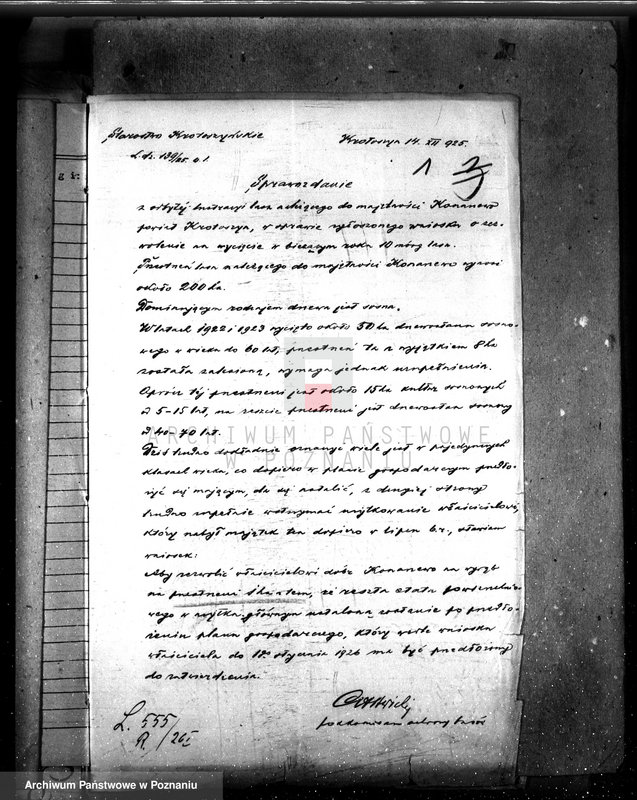 Starostwo Krotoszyńskie
Krotoszyn 14. XII 925.
L. dz. 139/25. o l.
1
Sprawozdanie
z odbytej lustracji lasu należącego do majętności Konarzewo
powiat Krotoszyn, w sprawie zgłoszonego wniosku o zez-
wolenie na wycięcie w bieżącym roku 10 mórg lasu.
Przestrzeń lasu należącego do majętności Konarzewo wynosi
około 200 ha.
Dominującym rodzajem drzewa jest sosna.
W latach 1922 i 1923 wycięto około 50 ha drzewostanu sosno-
wego w wieku do 60 lat, przestrzeń ta z wyjątkiem 8 ha
została zalesiona, wymaga jednak uzupełnienia.
Oprócz tej przestrzeni jest około 15 ha kultur sosnowych
od 5-15 lat, na reszcie przestrzeni jest drzewostan sosnowy
od 40-70 lat.
Jest trudno dokładnie ile jest w pojedynczych
klasach wieku, co dopiero w planie gospodarczym przedło-
żyć się mającym, da się ustalić, z drugiej strony
trudno zupełnie wstrzymać użytkowanie właścicielowi,
który nabył majątek ten dopiero w lipcu b.r., stawiam
wniosek:
Aby zezwolić właścicielowi dóbr Konarzewo na wyrąb
na przestrzeni 1 ha z tem, że reszta etatu
wego w użytku głównym ustaloną zostanie po przedło-
żeniu planu gospodarczego, który wedle wniosku
właściciela do 1go stycznia 1926 ma być przedłożony
do zatwierdzenia.
komisarz ochrony lasów
L. 555/
R. /26 I
ARCHIWUM PAŃSTWOWE
W POZNANIU
Archiwum Państwowe w Poznaniu